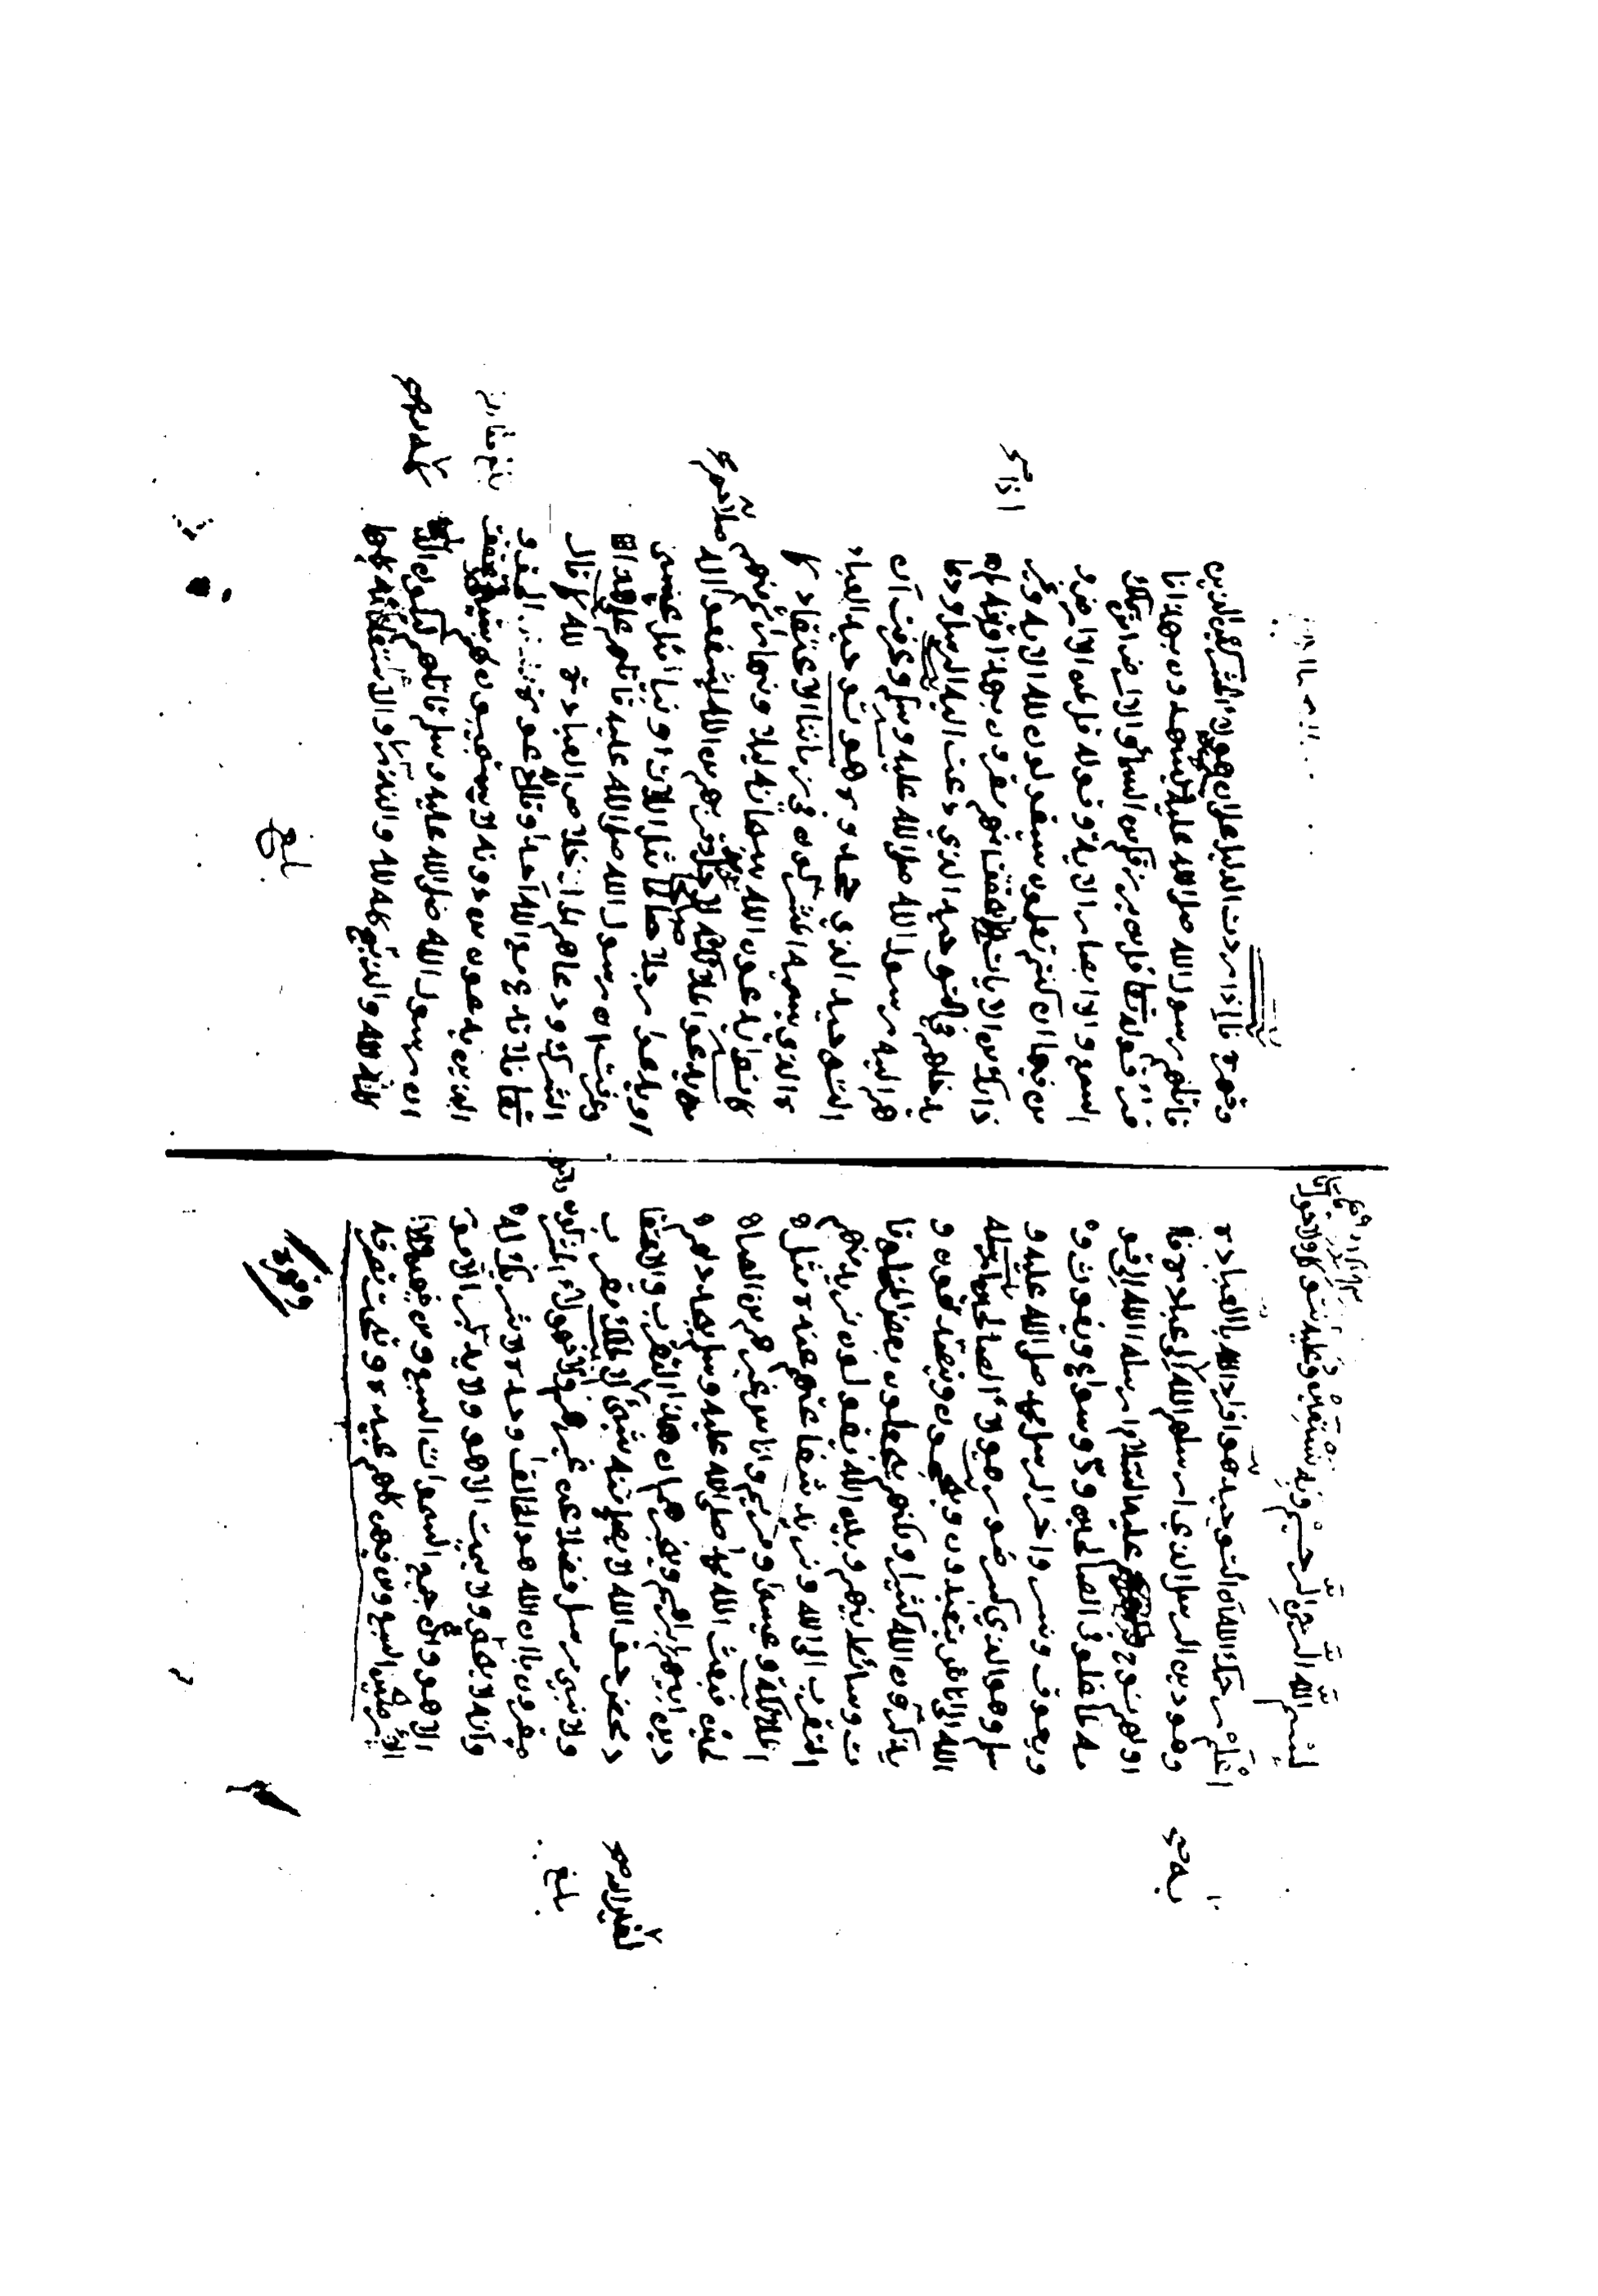 بسم الله الرحمن الرحيم وبه نستعين وعليه نتوكل ولا حول
اعلم رحمك الله ان التوحيد هو افراد الله بالعبادة
وهو دين الرسل الذي ارسلهم الله الى عباده فا
اولهم نوح عليه السلام ارسله الله الى قو
مه لما غلوا في الصالحين ود وسواع ويغوث و
ويعوق ونسر واخر الرسل محمد صلى الله عليه و
سلم وهو الذي كسر صور هولاء الصالحين ارسله
الله الى اناس يتعبدون ويحجون ويتصدقون و
يذكرون الله كثيرا ولكنهم يجعلون بعض المخلوقا
ت وسائط بينهم وبين الله يقولون نريد منهم
التقرب الى الله ونريد شفاعتهم عنده مثل
الملائكة وعيسى ومريم واناس غيرهم من الصا
لحين فبعث الله محمدا صلى الله عليه وسلم يجدد لهم
دين ابيهم ابراهيم ويخبرهم ان هذا التقرب والاعتقا
د محض حق الله لا يصلح منه شيئ لا لملك مقرب
ولا نبي مرسل فضلا عن غيرهم والا فهولاء المشركون
مقرون بان الله هو الخالق وحده لا شريك له
وانه لا يميت الا هو ولا يدبر الامور
الا هو وان جميع السموات السبع ومن فيهن
الارضين السبع ومن فيهن كلهم عبيده وتحت تصرفه
وقهره
بلغ
وقهره فاذا اردت الدليل على ان هولاء المشركين الذين
قاتلهم رسول الله صلى الله عليه يشهدون بهذا فا
قرأ قوله تعالى قل من يرزقكم من السماء والارض امن يملك
السمع والابصار الاية وقوله قل لمن الارض و
من فيها ان كنتم تعلمون سيقولون لله الاية وغير
ذالك من الايات تحققت انهم مقرون بهذا وانه لم
يدخلهم في التوحيد الذي دعت اليه الرسل ودعا
هم اليه رسول الله صلى الله عليه وسلم وعرفت ان
التوحيد الذي جحدوه هو توحيد العباد
ة الذي يسميه المشركون في زماننا الاعتقاد
كانوا يدعون الله سبحانه ليلا ونهارا ثم منهم
من يدعو الملائكة لاجل وقربهم من الله ليشفعوا له
او يدعوا رجلا صالحا مثل اللات او نبيا مثل عيسى
وعرفت ان رسول الله صلى الله عليه قاتلهم على هذا
الشرك ودعاهم الى اخلاص العبادة لله كما قال
تعالى فلا تدعوا مع الله احدا وقال له دعوة الحق و
الذين يدعون من دونه لا يستجيبون لهم بشيئ وتحققت
ان رسول الله صلى الله عليه وسلم قاتلهم ليكون الد
كله لله والنذر كله والذبح كله لله
بلغ